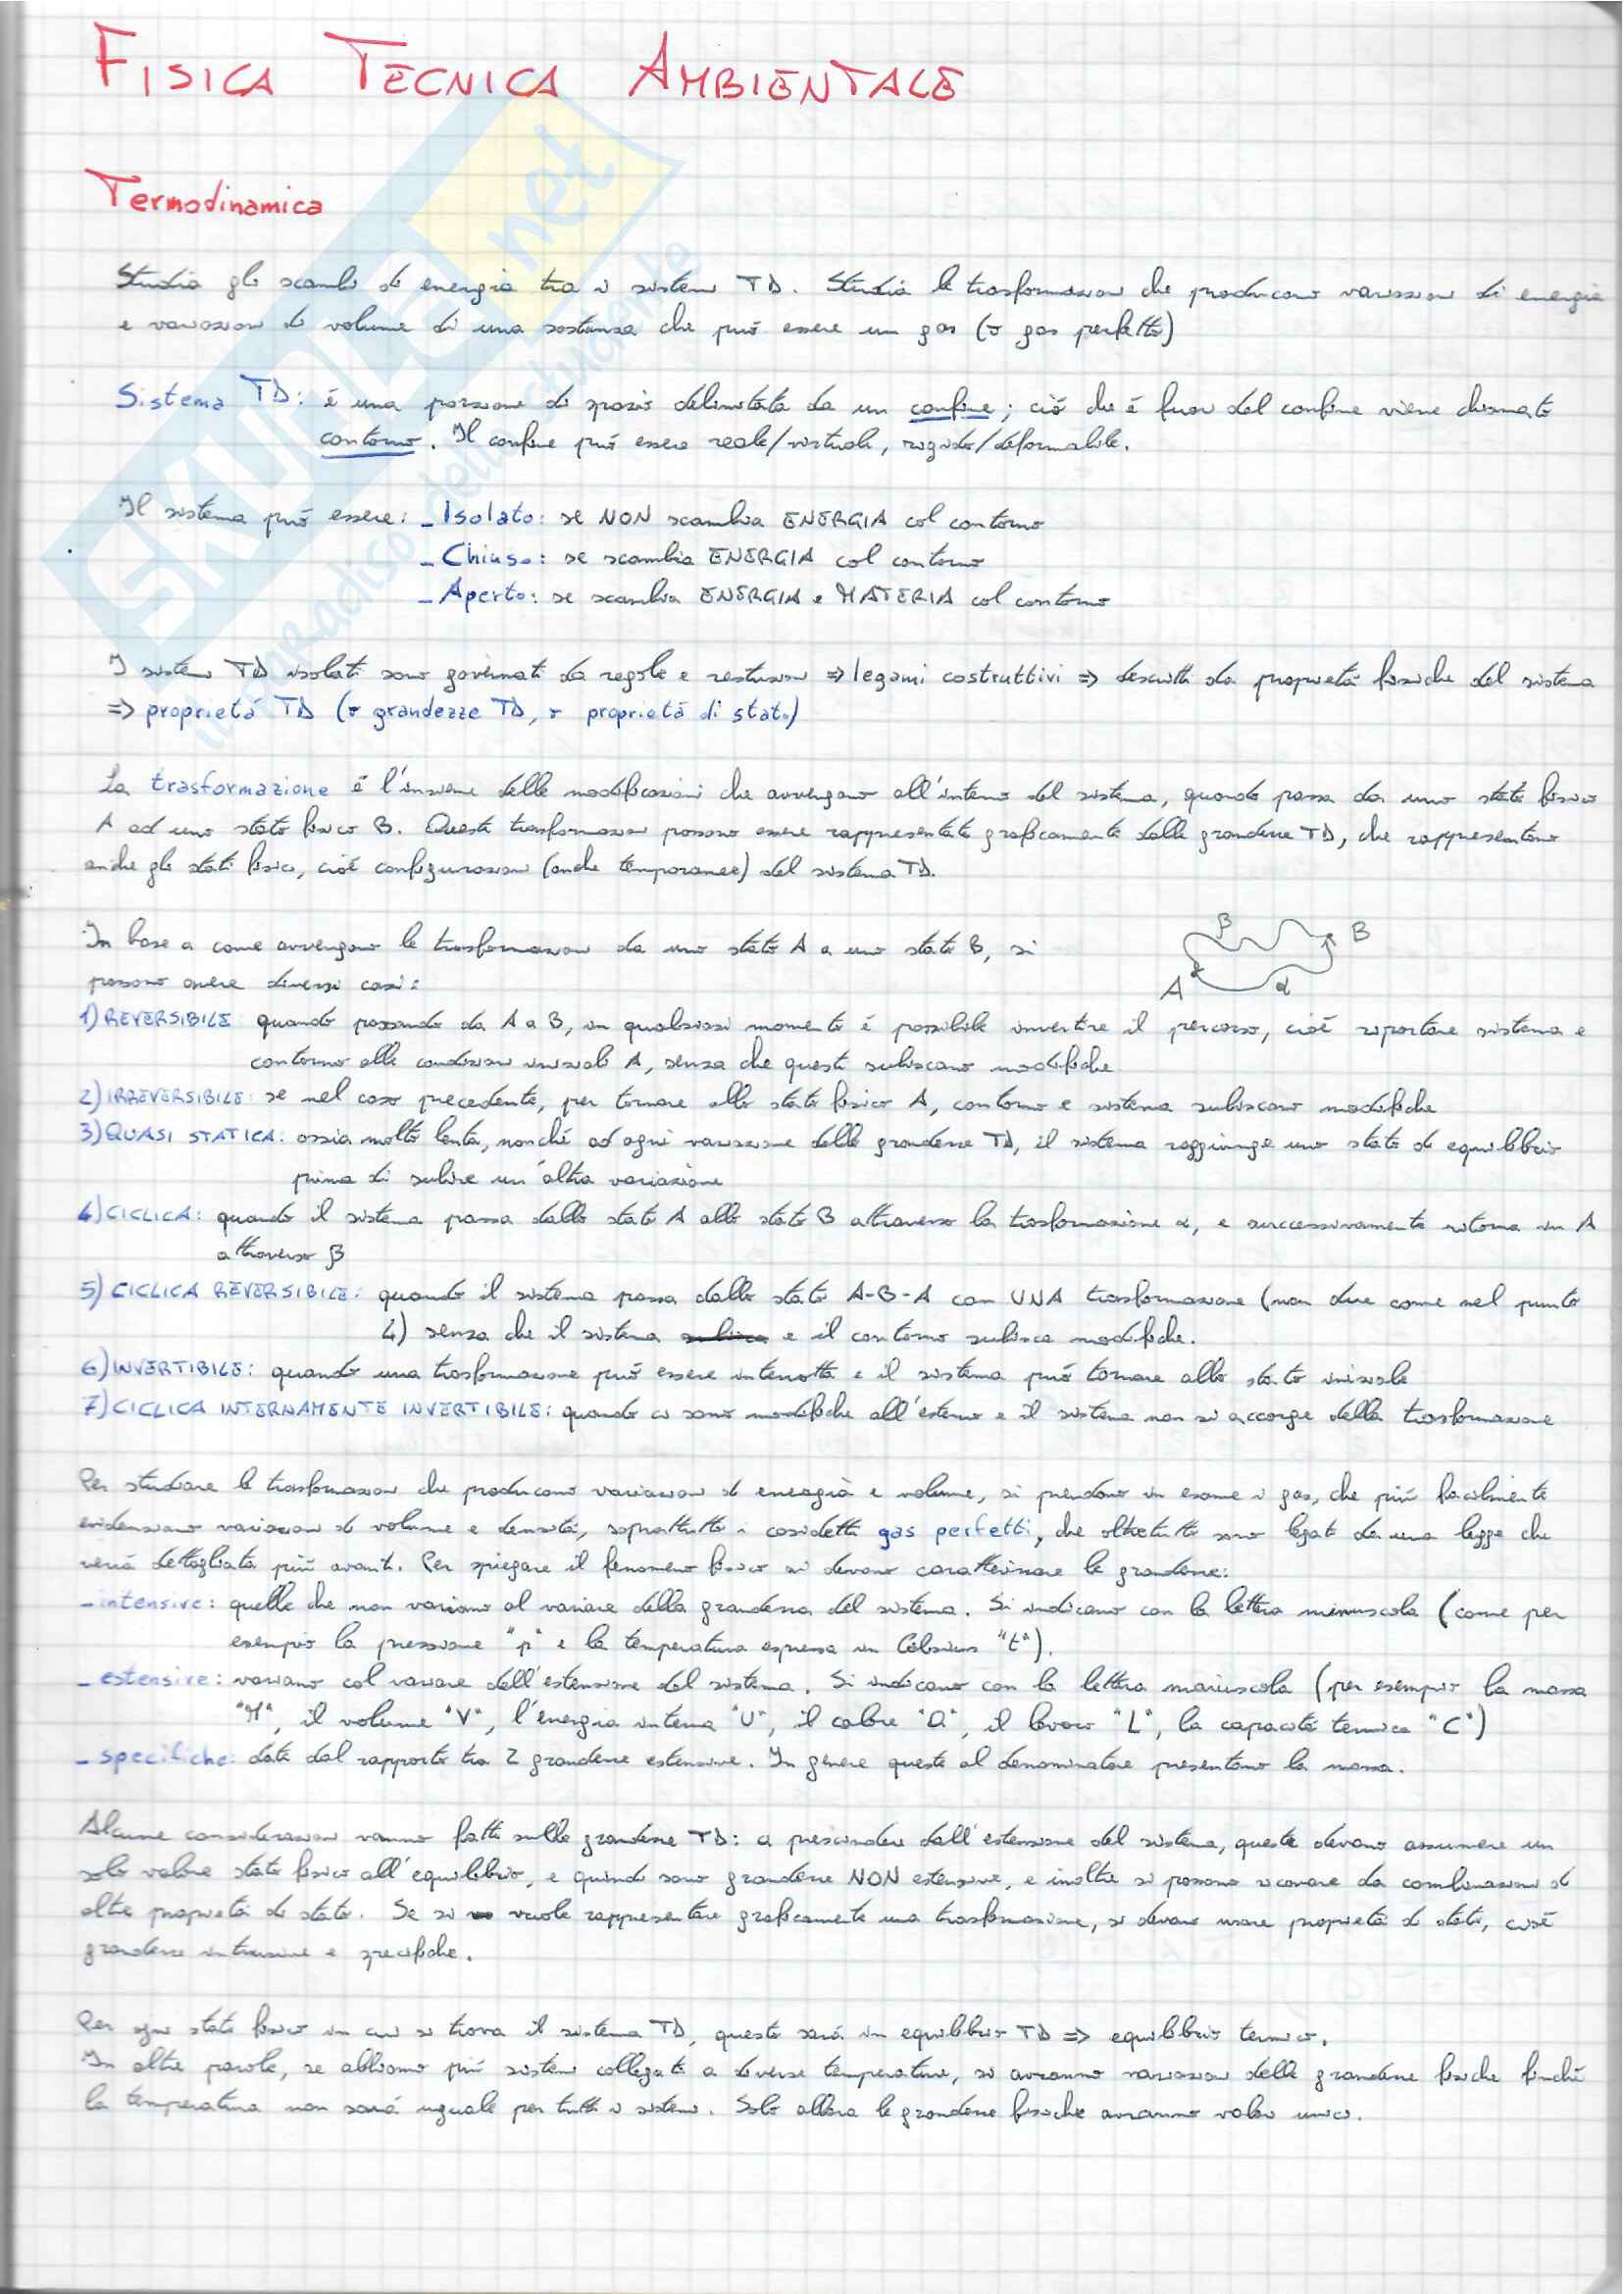 FISICA TECNICA AMBIENTALE
Termodinamica
Studia gli scambi di energia tra i sistemi TD. Studia le trasformazioni che producono variazioni di energia
e variazioni di volume di una sostanza che può essere un gas (o gas perfetto)
Sistema TD: é una porzione di spazio delimitata da un confine; ciò che é fuori dal confine viene chiamato
contorno. Il confine può essere reale/virtuale, rigido/deformabile.
Il sistema può essere: - Isolato: se NON scambia ENERGIA col contorno
- Chiuso: se scambia ENERGIA col contorno
- Aperto: se scambia ENERGIA e MATERIA col contorno
I sistemi TD isolati sono governati da regole e restrizioni => legami costruttivi => descritti da proprietá fisiche del sistema
=> proprietá TD (o grandezze TD, o proprietá di stato)
La trasformazione é l'insieme delle modificazioni che avvengono all'interno del sistema, quando passa da uno stato fisico
A ad uno stato fisico B. Queste trasformazioni possono essere rappresentate graficamente dalle grandezze TD, che rappresentano
anche gli stati fisici, cioé configurazioni (anche temporanee) del sistema TD.
In base a come avvengono le trasformazioni da uno stato A a uno stato B, si
possono avere diversi casi:
β B
A α
1) REVERSIBILE: quando passando da A a B, in qualsiasi momento é possibile invertire il percorso, cioé riportare sistema e
contorno alle condizioni iniziali A, senza che questi subiscano modifiche
2) IRREVERSIBILE: se nel caso precedente, per tornare allo stato fisico A, contorno e sistema subiscono modifiche
3) QUASI STATICA: ossia molto lenta, nonché ad ogni variazione delle grandezze TD, il sistema raggiunge uno stato di equilibrio
prima di subire un'altra variazione
4) CICLICA: quando il sistema passa dallo stato A allo stato B attraverso la trasformazione α, e successivamente ritorna in A
attraverso β
5) CICLICA REVERSIBILE: quando il sistema passa dallo stato A-B-A con UNA trasformazione (non due come nel punto
4) senza che il sistema e il contorno subisca modifiche.
6) INVERTIBILE: quando una trasformazione può essere interrotta e il sistema può tornare allo stato iniziale
7) CICLICA INTERNAMENTE INVERTIBILE: quando ci sono modifiche all'esterno e il sistema non si accorge della trasformazione
Per studiare le trasformazioni che producono variazioni di energia e volume, si prendono in esame i gas, che più facilmente
evidenziano variazioni di volume e densità, soprattutto i cosidetti gas perfetti, che oltretutto sono legati da una legge che
verrá dettagliata più avanti. Per spiegare il fenomeno fisico si devono caratterizzare le grandezze:
- intensive: quelle che non variano al variare della grandezza del sistema. Si indicano con la lettera minuscola (come per
esempio la pressione "p" e la temperatura espressa in Celsius "t").
- estensive: variano col variare dell'estensione del sistema. Si indicano con la lettera maiuscola (per esempio la massa
"M", il volume "V", l'energia interna "U", il calore "Q", il lavoro "L", la capacità termica "C")
- specifiche: date dal rapporto tra 2 grandezze estensive. In genere queste al denominatore presentano la massa.
Alcune considerazioni vanno fatte sulle grandezze TD: a prescindere dall'estensione del sistema, queste devono assumere un
solo valore stato fisico all'equilibrio, e quindi sono grandezze NON estensive, e inoltre si possono ricavare da combinazioni di
altre proprietá di stato. Se si vuole rappresentare graficamente una trasformazione, si devono usare proprietá di stato, cioé
grandezze intensive e specifiche.
Per ogni stato fisico in cui si trova il sistema TD, questo sará in equilibrio TD => equilibrio termico.
In altre parole, se abbiamo più sistemi collegati a diverse temperature, si avranno variazioni delle grandezze fisiche finché
la temperatura non sará uguale per tutti i sistemi. Solo allora le grandezze fisiche avranno valori unici.
SKUOLA.net
il paradiso dello studente